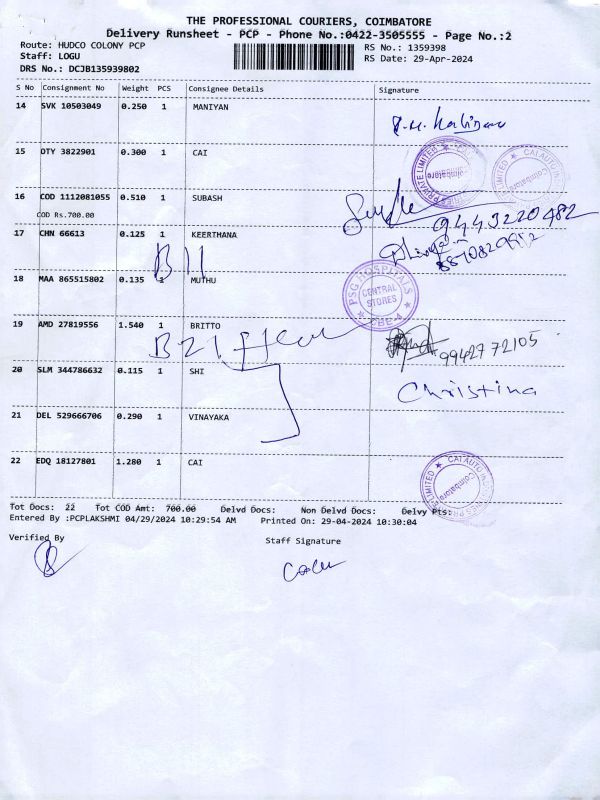 THE PROFESSIONAL COURIERS, COIMBATORE
Delivery Runsheet - PCP - Phone No.:0422-3505555 - Page No.:2
Route: HUDCO COLONY PCP
RS No.: 1359398
Staff: LOGU
RS Date: 29-Apr-2024
DRS No.: DCJB135939802
S No Consignment No Weight PCS Consignee Details Signature
14 SVK 10503049 0.250 1 MANIYAN
15 OTY 3822901 0.300 1 CAI
CAI AUTO INDUSTRIES PRIVATE LIMITED Coimbatore
CAI AUTO INDUSTRIES PRIVATE LIMITED Coimbatore
16 COD 1112081055 0.510 1 SUBASH
COD Rs.700.00
9443220482
17 CHN 66613 0.125 1 KEERTHANA
B11
18 MAA 865515802 0.135 1 MUTHU
PSG HOSPITALS CENTRAL STORES CBE-4
19 AMD 27819556 1.540 1 BRITTO
B21
99427 72105
20 SLM 344786632 0.115 1 SHI
Christina
21 DEL 529666706 0.290 1 VINAYAKA
22 EDQ 18127801 1.280 1 CAI
CAI AUTO INDUSTRIES PRIVATE LIMITED Coimbatore
Tot Docs: 22 Tot COD Amt: 700.00 Delvd Docs: Non Delvd Docs: Delvy Pts:
Entered By :PCPLAKSHMI 04/29/2024 10:29:54 AM Printed On: 29-04-2024 10:30:04
Verified By
Staff Signature